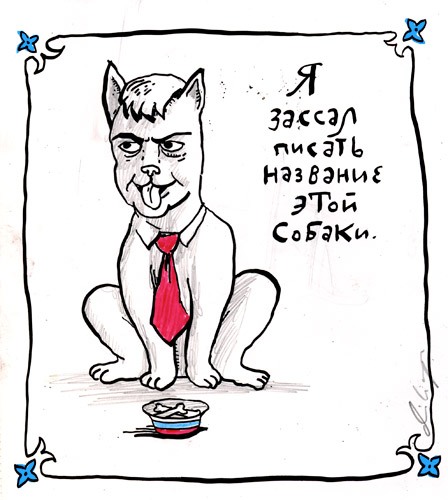 Я
зассал
писать
название
этой
собаки.